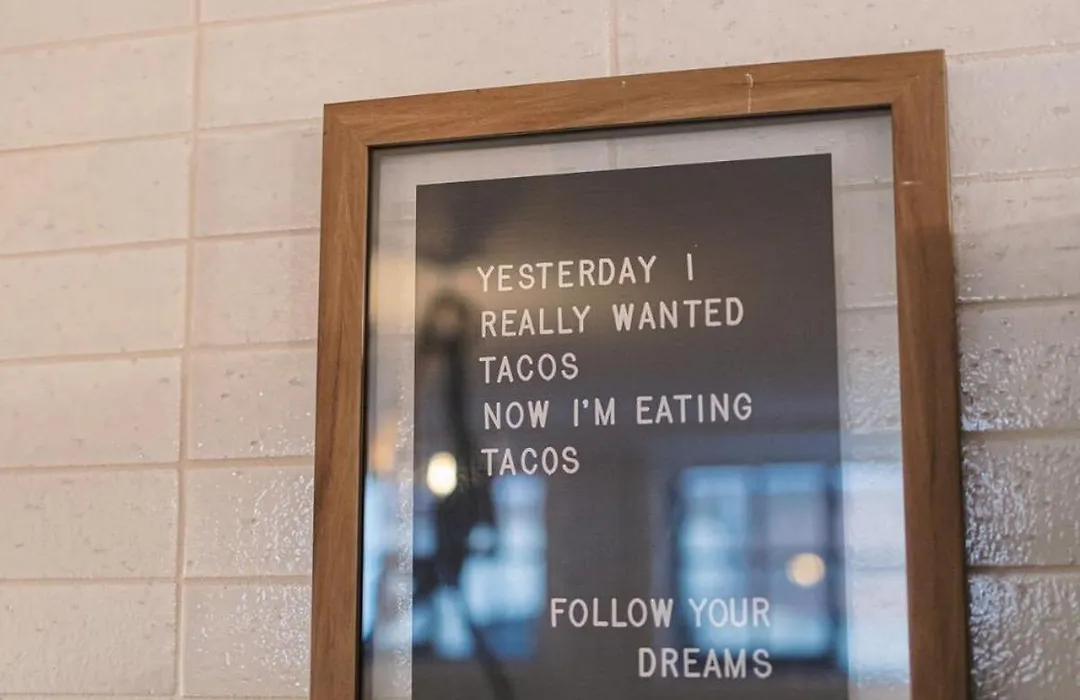 YESTERDAY I
REALLY WANTED
TACOS
NOW I'M EATING
TACOS
FOLLOW YOUR
DREAMS